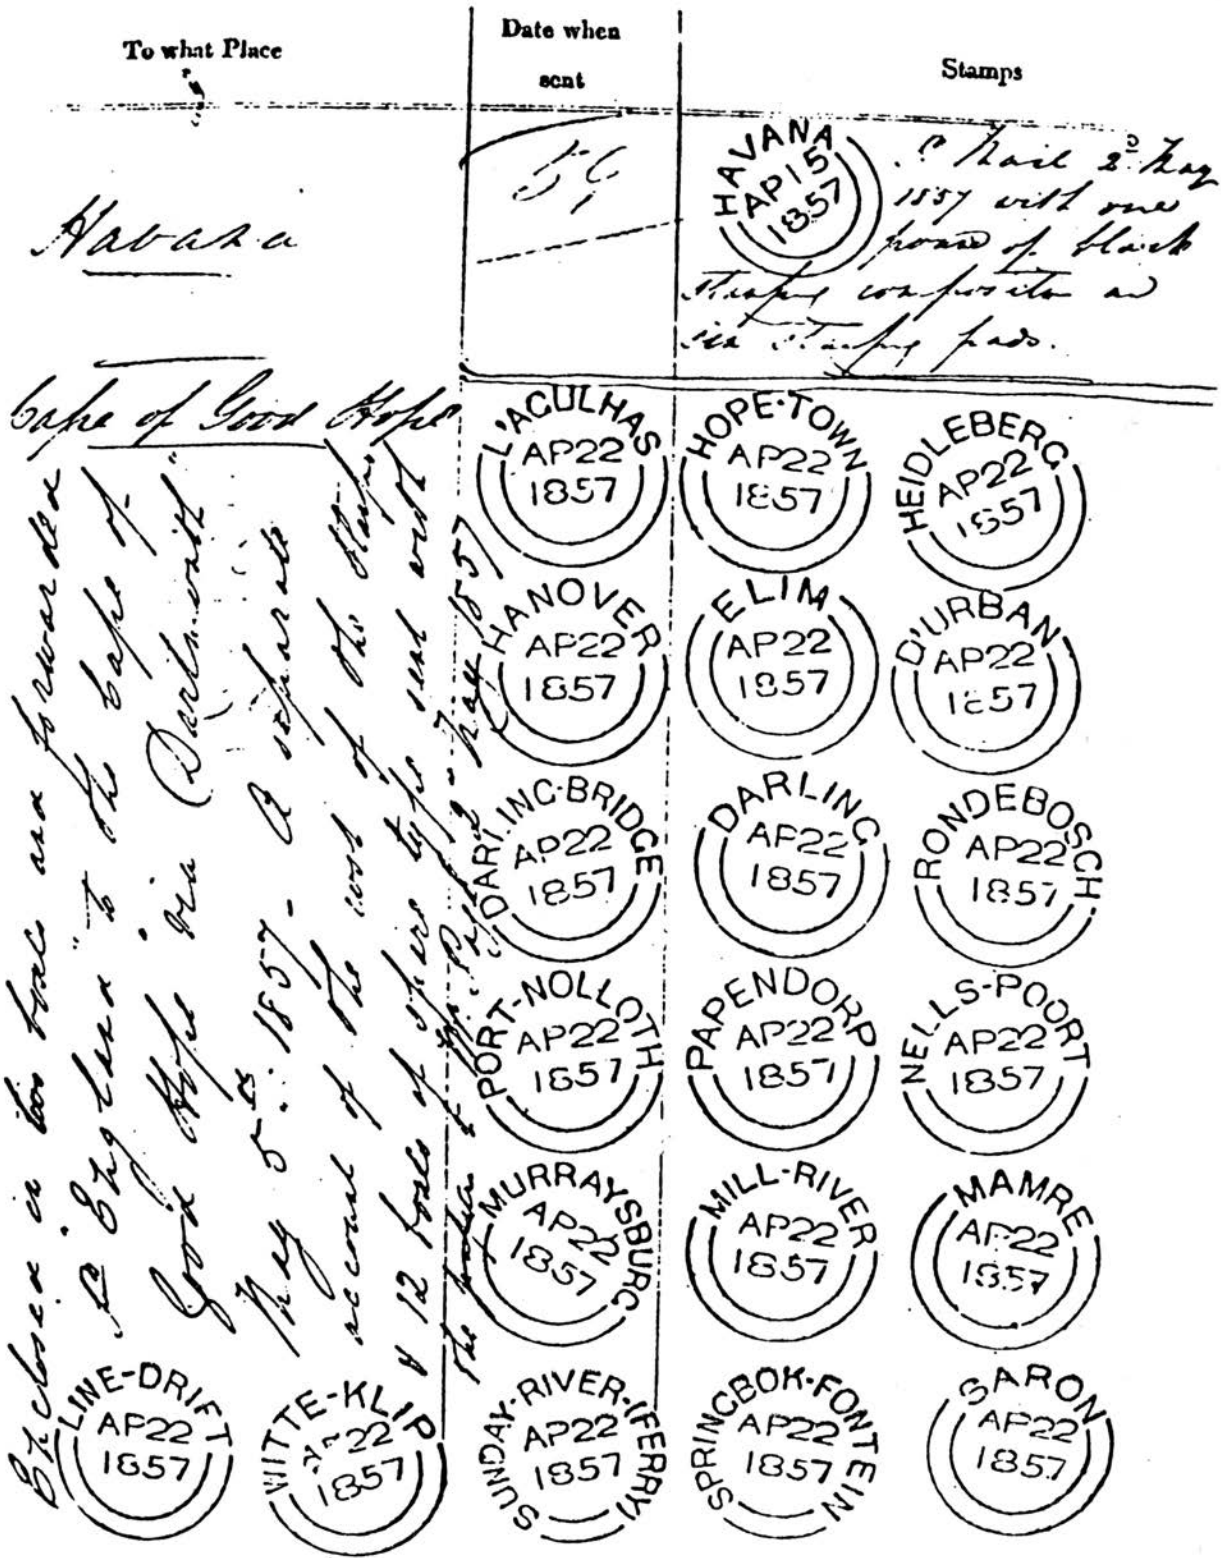 To what Place
Date when
sent
Stamps
Havana
HAVANA
AP 15
1857
Mail 2d May
1857 with one
pound of black
Stamping composition and
six Stamping pads.
Cape of Good Hope
Enclosed in two boxes and forwarded
to England to the Cape of
Good Hope via (Dartmouth)
May 5th 1857 - A separate
account of the cost of the Stamps
& 12 boxes of spare type sent with
the 1857
L'AGULHAS
AP22
1857
HOPE-TOWN
AP22
1857
HEIDLEBERG
AP22
1857
HANOVER
AP22
1857
ELIM
AP22
1857
D'URBAN
AP22
1857
DARLING-BRIDGE
AP22
1857
DARLING
AP22
1857
RONDEBOSCH
AP22
1857
PORT-NOLLOTH
AP22
1857
PAPENDORP
AP22
1857
NELLS-POORT
AP22
1857
MURRAYSBURG
AP22
1857
MILL-RIVER
AP22
1857
MAMRE
AP22
1857
LINE-DRIFT
AP22
1857
WITTE-KLIP
AP22
1857
SUNDAY-RIVER-(FERRY)
AP22
1857
SPRINGBOK-FONTEIN
AP22
1857
SARON
AP22
1857